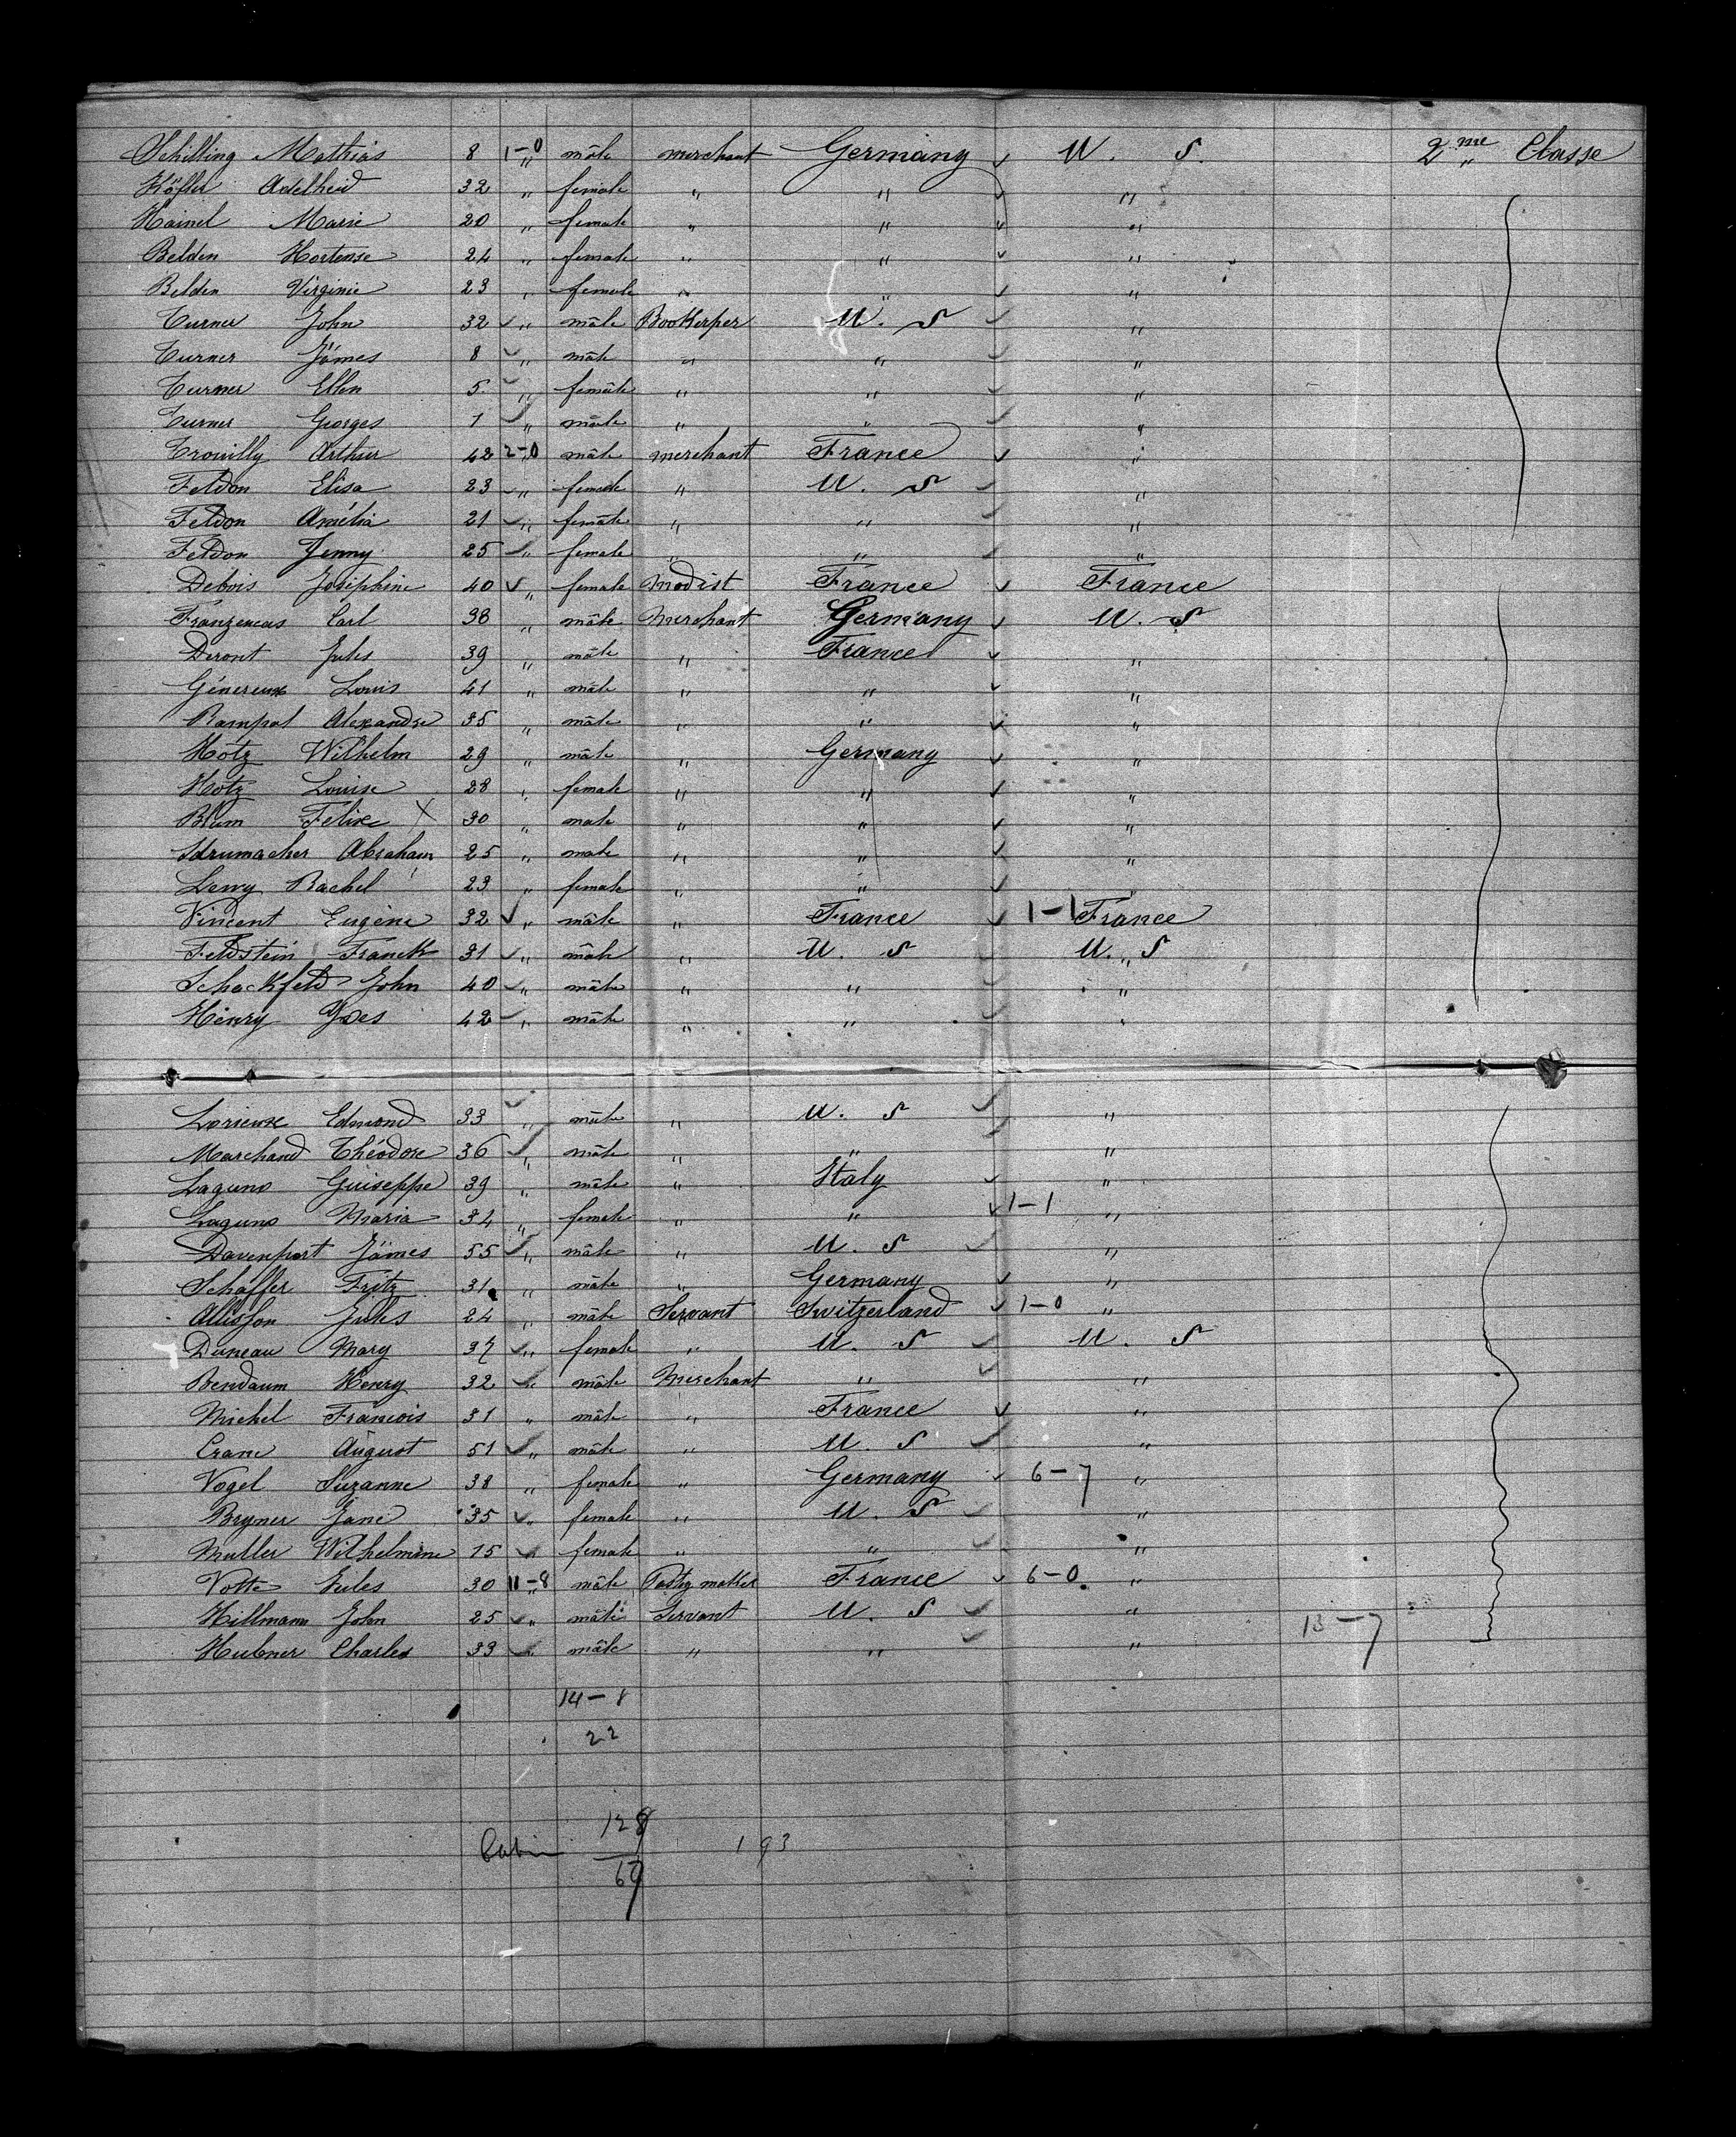 Schilling Mathias 8 1-0 " mâle merchant Germany U. S. 2me Classe
Höfler Adelheid 32 " female " " "
Hainel Marie 20 " female " " "
Belden Hortense 24 " female " " "
Belden Virginie 23 " female " " "
Turner John 32 " mâle Bookerper U. S "
Turner James 8 " mâle " " "
Turner Ellen 5 " female " " "
Turner Georges 1 " mâle " " "
Trouilly Arthur 42 2-0 mâle merchant France "
Feldon Elisa 23 " female " U. S "
Feldon Amélia 21 " female " " "
Feldon Jenny 25 " female " " "
Debois Joséphine 40 " female Modist France France
Carl 38 " mâle Merchant Germany U. S
Deront Jules 39 " mâle " France "
Génereux Louis 41 " mâle " " "
Rampal Alexandre 35 " mâle " " "
Hotz Wilhelm 29 " mâle " Germany "
Hotz Louise 28 " female " " "
Blum Felixe X 30 " male " " "
Abraham 25 " male " " "
Levvy Rachel 23 " female " " "
Vincent Eugène 32 " mâle " France 1-1 France
Feldstein Franck 31 " mâle " U. S U. S
Schackfeld John 40 " mâle " " "
Henry Yves 42 " mâle " " "
Lorieux Edmond 33 " mâle " U. S "
Marchand Théodore 36 " mâle " " "
Laguno Guiseppe 39 " mâle " Italy "
Laguno Maria 34 " female " " 1-1 "
Davenport James 55 " mâle " U. S "
Schaffer Fritz 31 " mâle " Germany "
Allisson Jules 24 " mâle Servant Switzerland 1-0 "
Duneau Mary 37 " female " U. S U. S
Bendaum Henry 32 " mâle Merchant " "
Michel Francois 31 " mâle " France "
Crane August 51 " mâle " U. S "
Vogel Suzanne 38 " female " Germany 6-7 "
Bryner Jane 35 " female " U. S "
Muller Wilhelmine 15 " female " " "
Votte Jules 30 11-8 mâle France 6-0 "
Hillmann John 25 " mâle Servant U. S " 13-7
Hubner Charles 33 " mâle " " "
14-8
22
128
Cabin 193
67